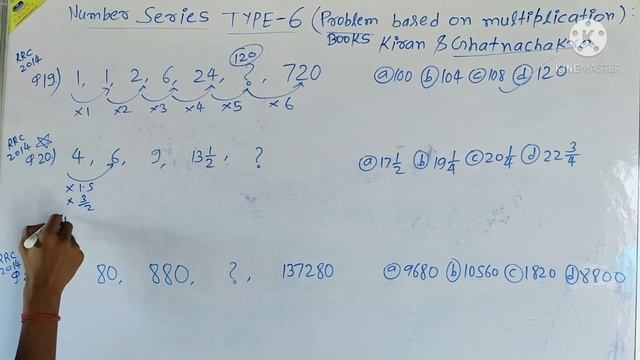 Number Series TYPE-6 (Problem based on multiplication).
BOOKS Kiran & Ghatnachakra
KINEMASTER
RRC 2014 Q19) 1, 1, 2, 6, 24, ?, 720 ⓐ100 ⓑ104 ⓒ108 ⓓ120
120
×1 ×2 ×3 ×4 ×5 ×6
RRC 2014 Q20) 4, 6, 9, 13 1/2, ? ⓐ17 1/2 ⓑ19 1/4 ⓒ20 1/4 ⓓ22 3/4
×1.5
×3/2
RRC 2014 Q 80, 880, ?, 137280 ⓐ9680 ⓑ10560 ⓒ1820 ⓓ8800